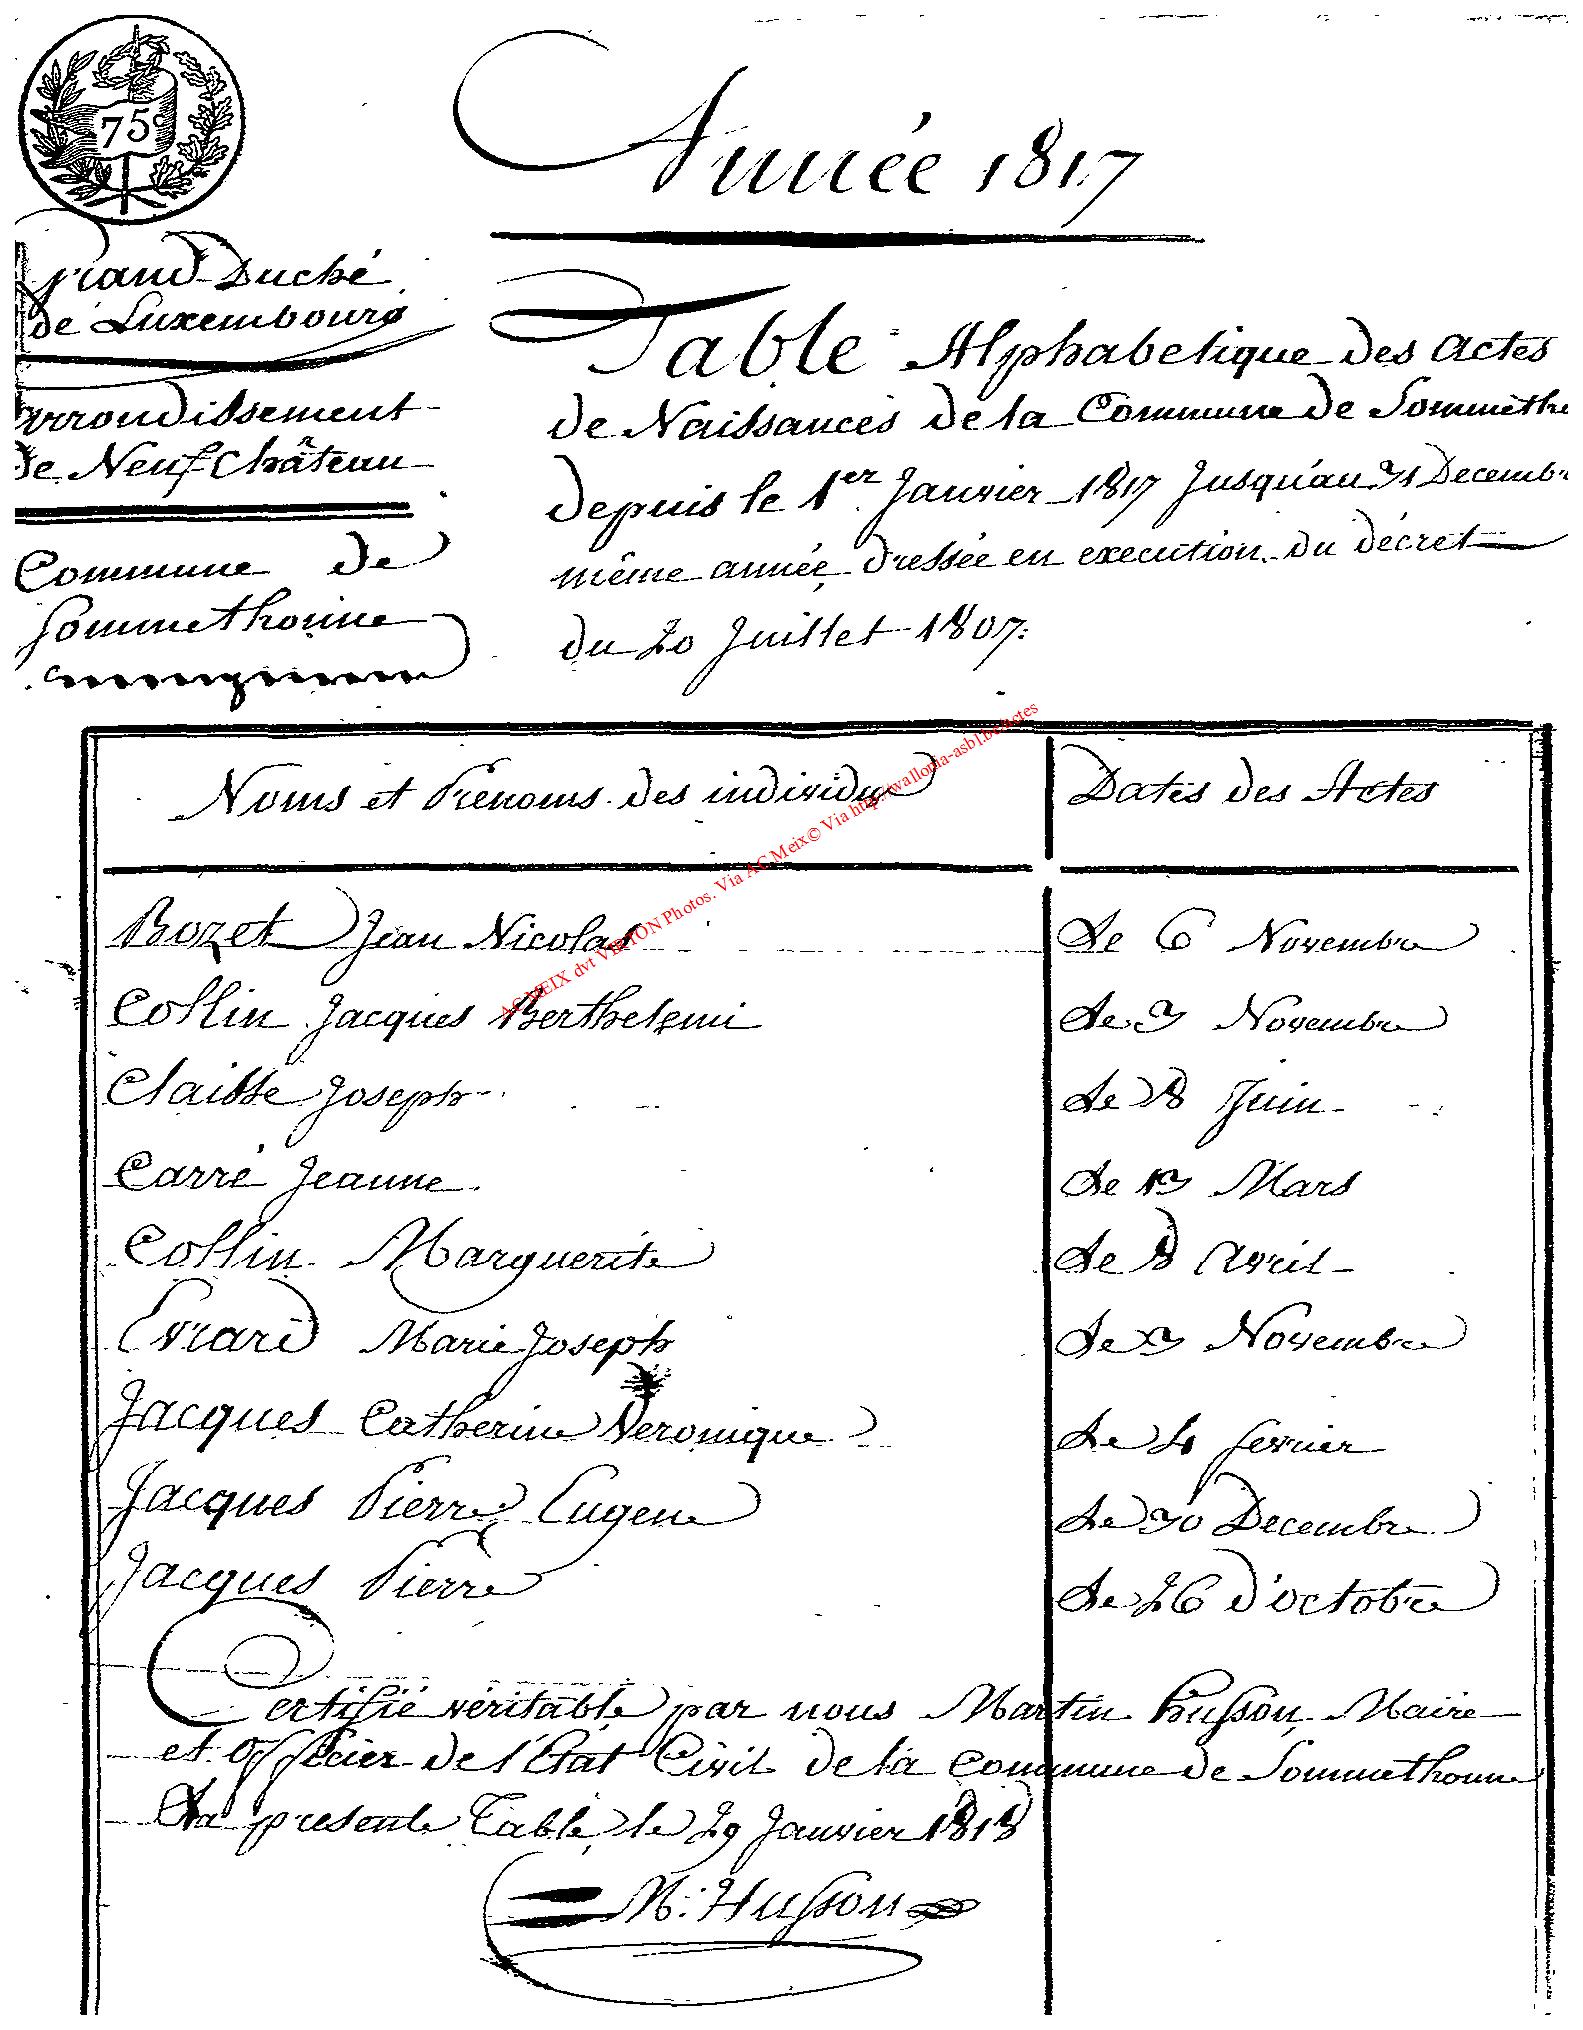 75c
Année 1817
Grand Duché
de Luxembourg
arrondissement
de Neufchâteau
Commune de
Sommethonne
Table Alphabetique des actes
de Naissances de la Commune de Sommetho
depuis le 1er Janvier 1817 Jusqu'au 31 Decemb
même année, dressée en execution du décret
du 20 Juillet 1807.
Noms et Prenoms des individu
Dates des Actes
Bozet Jean Nicolas
Le 6 Novembre
Collin Jacques Berthelemi
Le 3 Novembre
Claisse Joseph
Le 8 Juin
Carré Jeanne
Le 13 Mars
Collin Marguerite
Le 8 avril
Evrard Marie Joseph
Le 3 Novembre
Jacques Catherine Veronique
Le 4 fevrier
Jacques Pierre Eugene
Le 30 Decembre
Jacques Pierre
Le 26 d'octobre
Certifié véritable par nous Martin Husson Maire
et officier de l'Etat Civil de la Commune de Sommethonne
La presente Table, le 29 Janvier 1818
M. Husson
AC MEIX dvt VIRTON Photos. Via AC Meix© Via http://wallonia-asbl.be/Actes